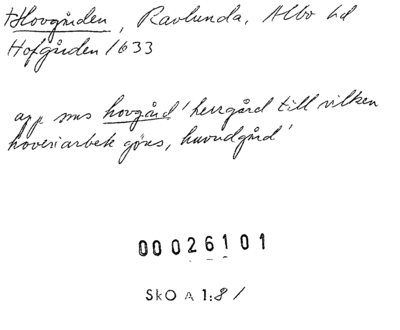 †Hovgården, Ravlunda, Albo hd
Hofgården 1633
app sms hovgård 'herrgård till vilken
hoveriarbete göres, huvudgård'
00026101
SkO A 1:81